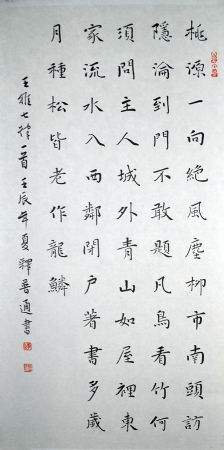 桃源一向絕風塵柳市南頭訪
隱淪到門不敢題凡鳥看竹何
須問主人城外青山如屋裡東
家流水入西鄰閉戶著書多歲
月種松皆老作龍鱗
王維七律一首壬辰年夏釋善通書